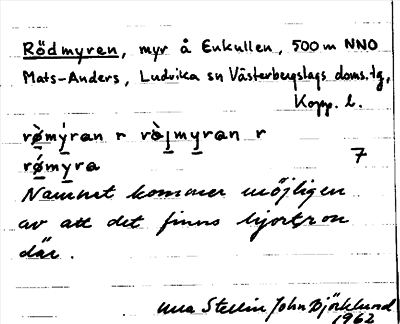 Rödmyren, myr å Enkullen, 500 m NNO
Mats-Anders, Ludvika sn Västerbergslags doms.tg,
Kopp. l.
rø̀mýran r rø̀jmyran r
7
rǿmyra
Namnet kommer möjligen
av att det finns hjortron
där.
Stellin John Björklund
1962